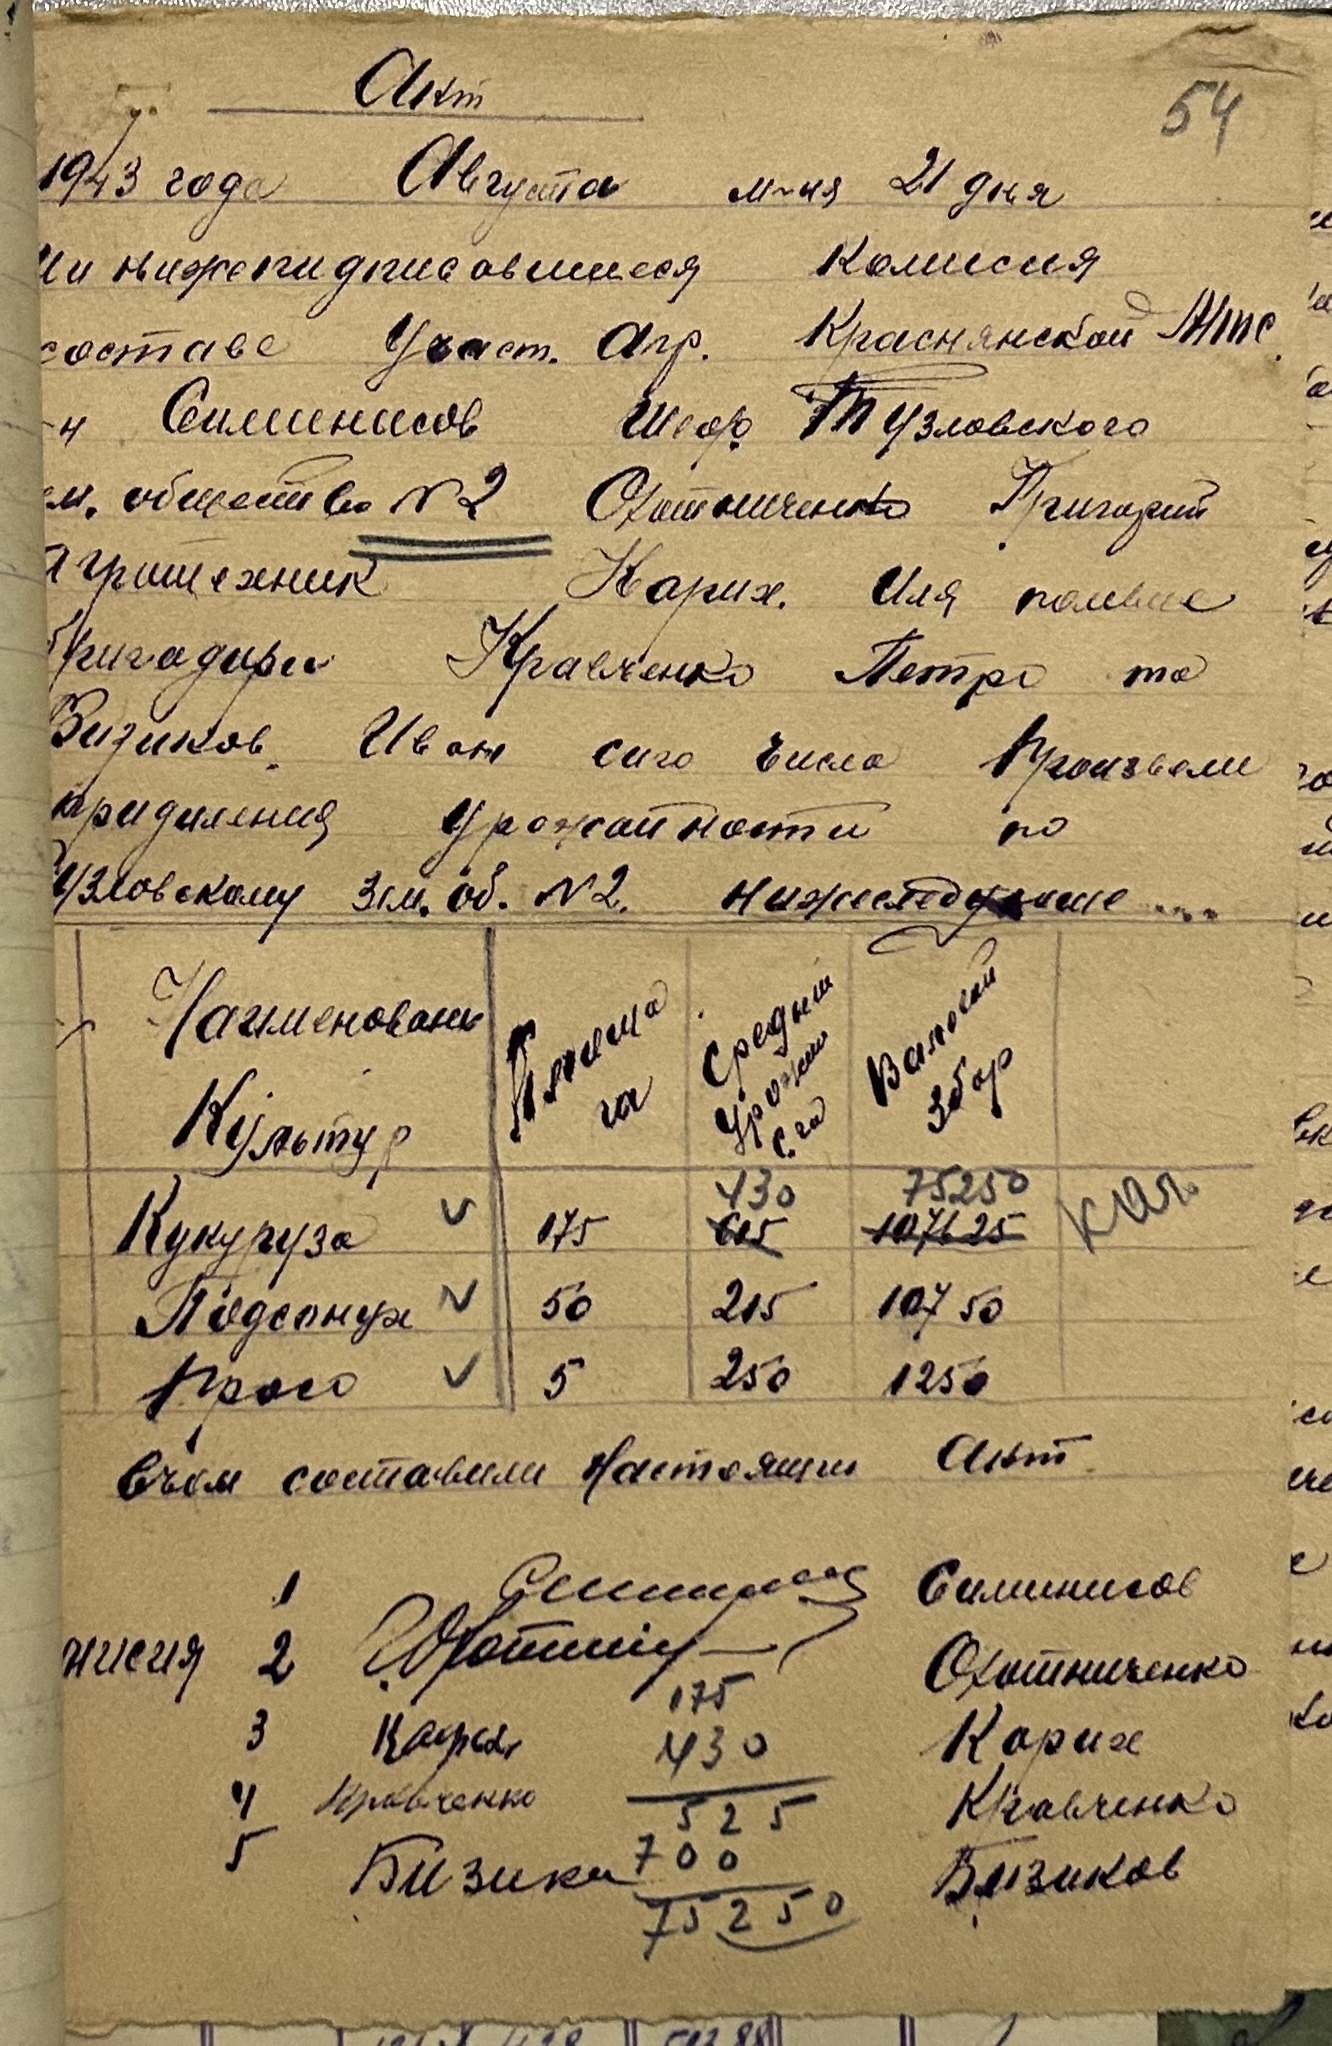 Акт
54
1943 года Августа м-ця 21 дня
ми нижепидписавшиеся комисия
составе Участ. Агр. Краснянской Мтс.
-н Силинисов Шеф. Тузловского
ем. общество №2 Охотниченко Григорий
Агротехник Карих. Иля полевие
бригадири Кравченко Петро та
Бизиков. Иван сиго числа произвели
придиления Урожайности по
Тузловскому зем. об. №2. нижеследующие ....
Наименовани Культур Площа га Средний Урожаи с. га Валовой Збор
430 75250
Кукуруза v 175 615 107625 кол.
Подсонух v 50 215 10750
Просо v 5 250 1250
Вчом составили Настоящи Акт
1 Силинисов
нисия 2 Охотниченко
175
3 Карих 430 Карих
4 Кравченко Кравченко
525
5 Бизики 700 Бизиков
75250